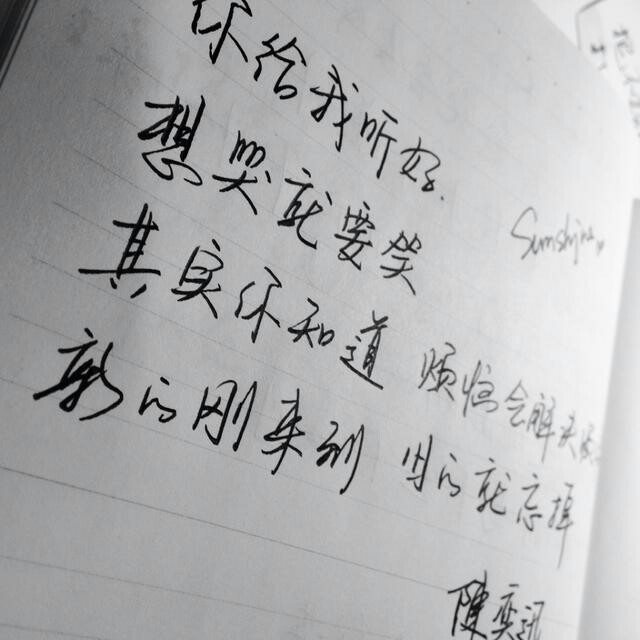 你给我听好
想哭就要笑
Sunshine
其实你知道 烦恼会解决
新的刚来到 旧的就忘掉
陈奕迅